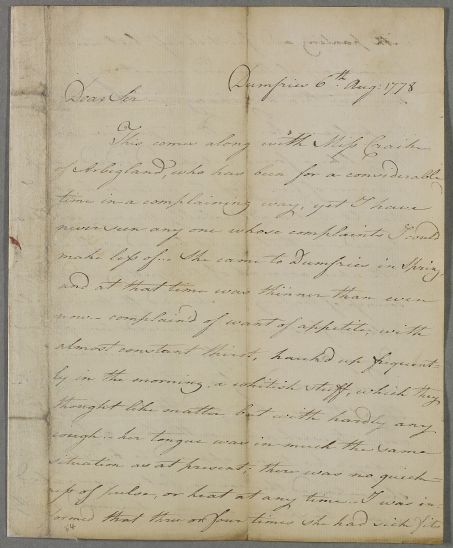 Dumfries 6th Aug: 1778
Dear Sir
This comes along with Miss Craik
of Arbigland, who has been for a considerable
time in a complaining way, yet I have
never seen any one whose complaints I could
make less of:- She came to Dumfries in Spring,
and at that time was thinner than even
now - complain'd of want of appetite, with
almost constant thirst, hauk'd up frequent=
ly in the morning, a whitish stuff, which they
thought like matter but with hardly any
cough:- her tongue was in much the same
situation as at present; there was no quick=
=ness of pulse, or heat at any time. I was in=
formed that three or four times she had sick fits